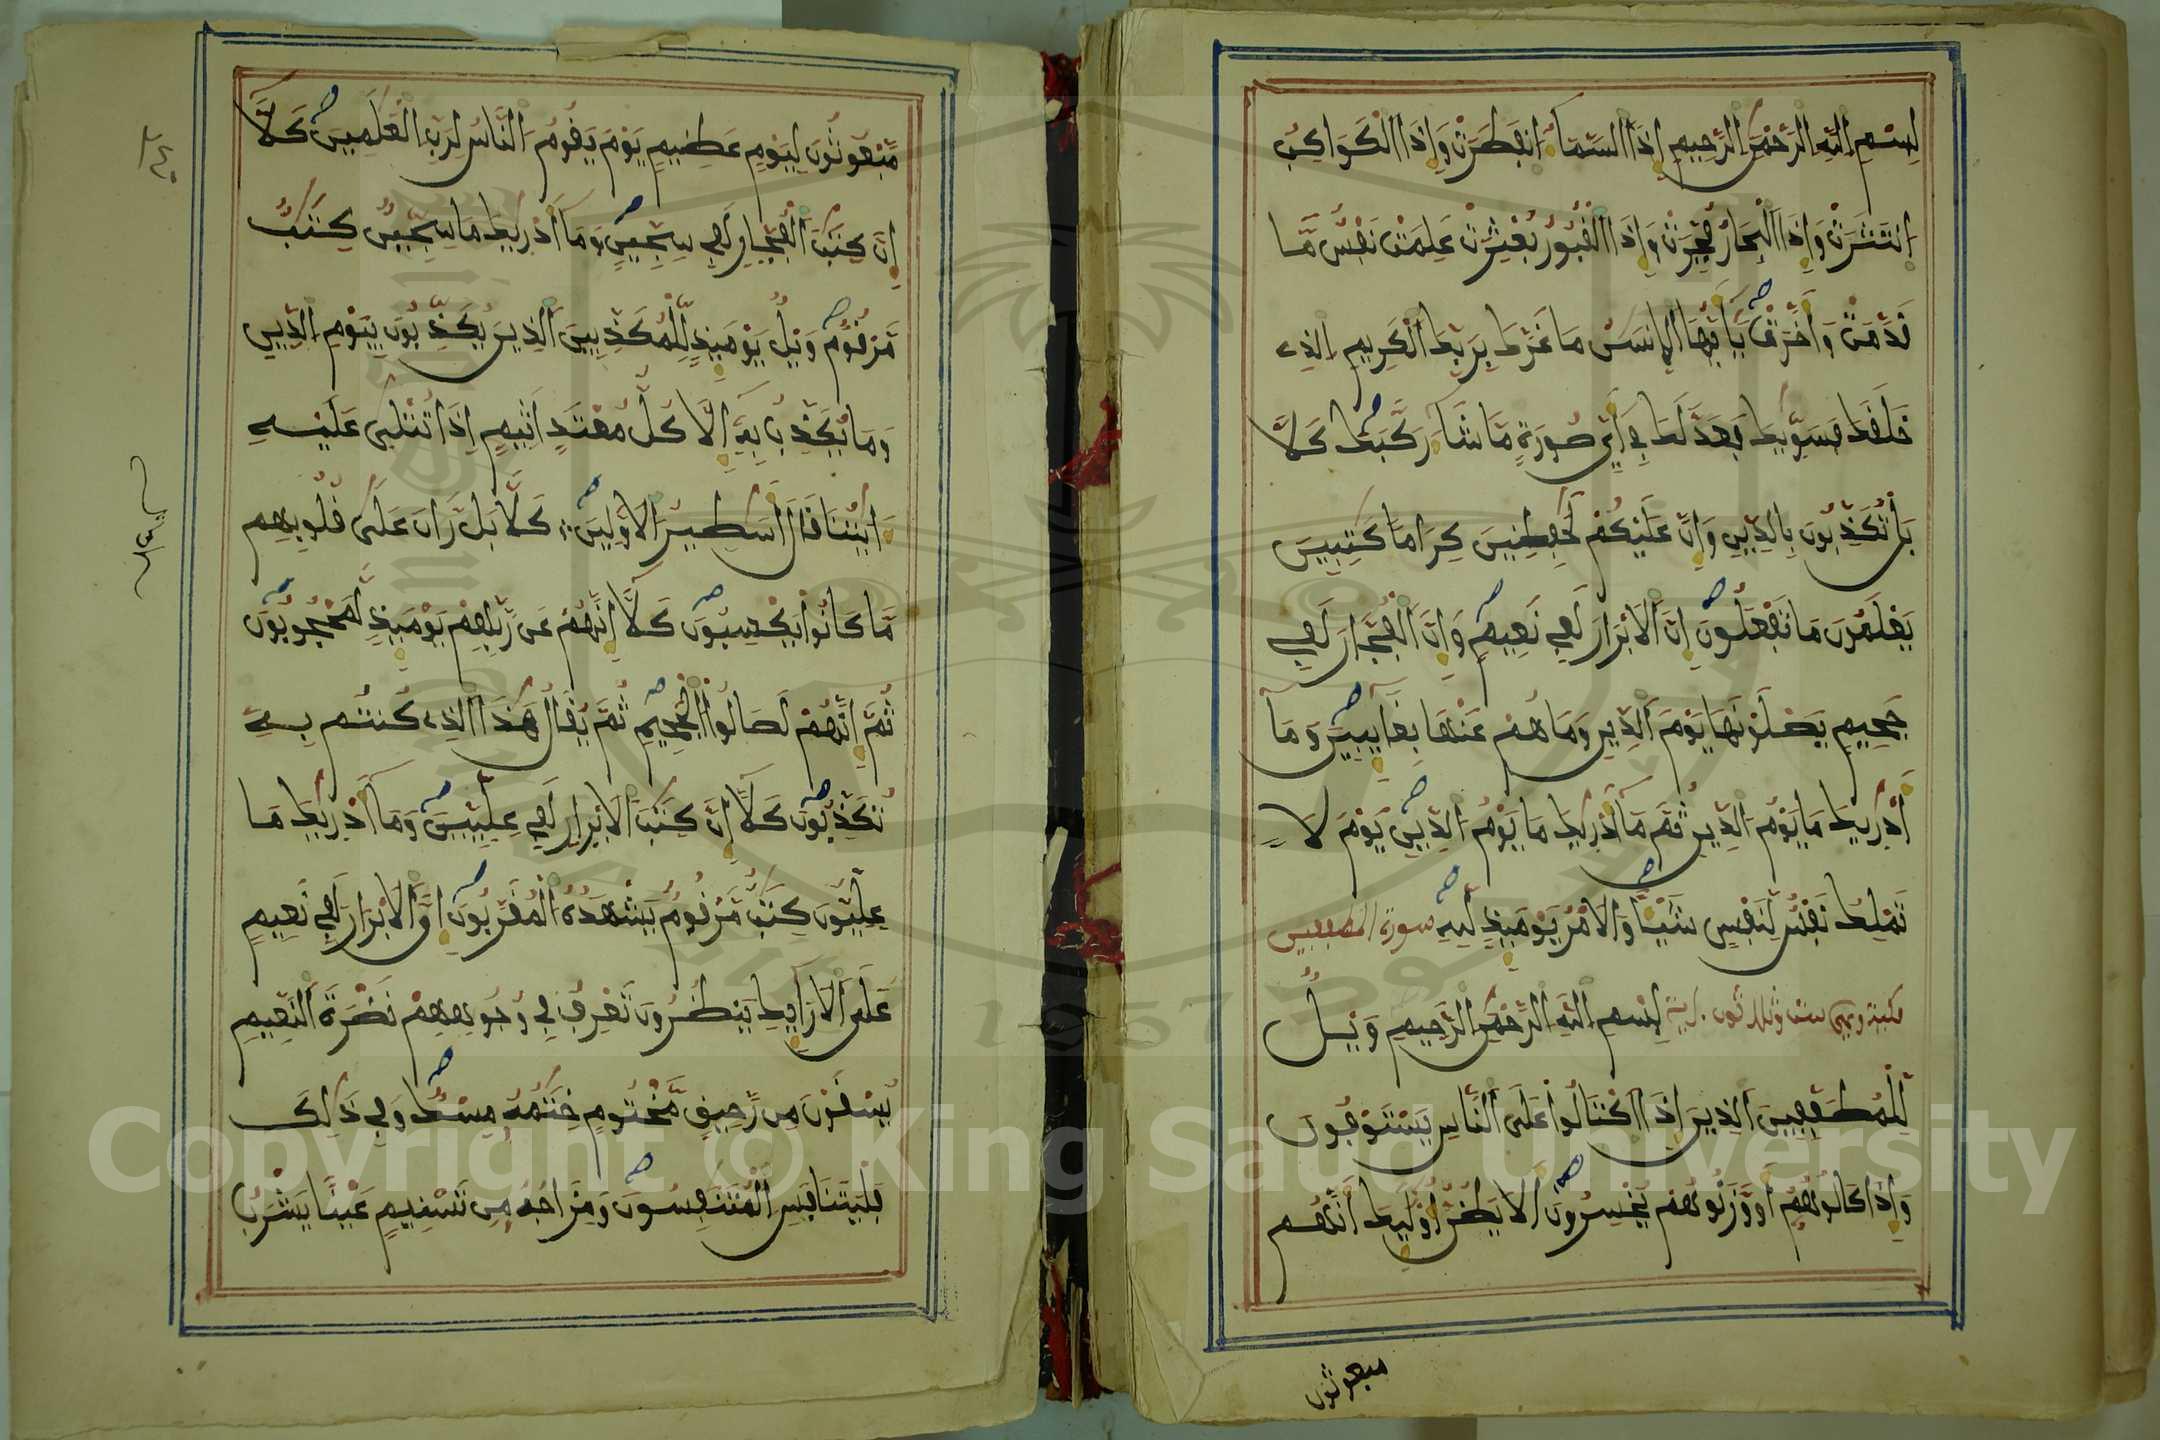 بِسْمِ اللَّهِ الرَّحْمَٰنِ الرَّحِيمِ إِذَا السَّمَاءُ انفَطَرَتْ وَإِذَا الْكَوَاكِبُ
انتَثَرَتْ وَإِذَا الْبِحَارُ فُجِّرَتْ وَإِذَا الْقُبُورُ بُعْثِرَتْ عَلِمَتْ نَفْسٌ مَّا
قَدَّمَتْ وَأَخَّرَتْ يَٰأَيُّهَا الْإِنسَٰنُ مَا غَرَّكَ بِرَبِّكَ الْكَرِيمِ الذِے
خَلَقَكَ فَسَوَّيٰكَ فَعَدَّلَكَ فِي أَيِّ صُورَةٍ مَّا شَاءَ رَكَّبَكَ كَلَّا
بَلْ تُكَذِّبُونَ بِالدِّينِ وَإِنَّ عَلَيْكُمْ لَحَٰفِظِينَ كِرَامًا كَٰتِبِينَ
يَعْلَمُونَ مَا تَفْعَلُونَ إِنَّ الْأَبْرَارَ لَفِي نَعِيمٍ وَإِنَّ الْفُجَّارَ لَفِي
جَحِيمٍ يَصْلَوْنَهَا يَوْمَ الدِّينِ وَمَا هُمْ عَنْهَا بِغَآئِبِينَ وَمَآ
أَدْرَيٰكَ مَا يَوْمُ الدِّينِ ثُمَّ مَآ أَدْرَيٰكَ مَا يَوْمُ الدِّينِ يَوْمَ لَا
تَمْلِكُ نَفْسٌ لِّنَفْسٍ شَيْئًا وَالْأَمْرُ يَوْمَئِذٍ لِّلهِ سورة المطففين
مكية وهي ست وثلاثون ءاية بِسْمِ اللَّهِ الرَّحْمَٰنِ الرَّحِيمِ وَيْلٌ
لِّلْمُطَفِّفِينَ الَّذِينَ إِذَا اكْتَالُوا عَلَى النَّاسِ يَسْتَوْفُونَ
وَإِذَا كَالُوهُمْ أَو وَّزَنُوهُمْ يُخْسِرُونَ أَلَا يَظُنُّ أُوْلَٰئِكَ أَنَّهُم
مبعوثون
مَّبْعُوثُونَ لِيَوْمٍ عَظِيمٍ يَوْمَ يَقُومُ النَّاسُ لِرَبِّ الْعَٰلَمِينَ كَلَّآ
إِنَّ كِتَٰبَ الْفُجِّارِ لَفِي سِجِّينٍ وَمَآ أَدْرَيٰكَ مَا سِجِّينٌ كِتَٰبٌ
مَّرْقُومٌ وَيْلٌ يَوْمَئِذٍ لِّلْمُكَذِّبِينَ الَّذِينَ يُكَذِّبُونَ بِيَوْمِ الدِّينِ
وَمَا يُكَذِّبُ بِهِ إِلَّا كُلُّ مُعْتَدٍ أَثِيمٍ إِذَا تُتْلَىٰ عَلَيْهِ
ءَايَٰتُنَا قَالَ أَسَٰطِيرُ الْأَوَّلِينَ كَلَّا بَل رَّانَ عَلَىٰ قُلُوبِهِم
مَّا كَانُوا يَكْسِبُونَ كَلَّا إِنَّهُمْ عَن رَّبِّهِمْ يَوْمَئِذٍ لَّمَحْجُوبُونَ
ثُمَّ إِنَّهُمْ لَصَالُوا الْجَحِيمِ ثُمَّ يُقَالُ هَٰذَا الذِے كُنتُم بِهِ
تُكَذِّبُونَ كَلَّا إِنَّ كِتَٰبَ الْأَبْرَارِ لَفِي عِلِّيِّينَ وَمَآ أَدْرَيٰكَ مَا
عِلِّيُّونَ كِتَٰبٌ مَّرْقُومٌ يَشْهَدُهُ الْمُقَرَّبُونَ إِنَّ الْأَبْرَارَ لَفِي نَعِيمٍ
عَلَى الْأَرَآئِكِ يَنظُرُونَ تَعْرِفُ فِي وُجُوهِهِمْ نَضْرَةَ النَّعِيمِ
يُسْقَوْنَ مِن رَّحِيقٍ مَّخْتُومٍ خِتَٰمُهُ مِسْكٌ وَفِي ذَٰلِكَ
فَلْيَتَنَافَسِ الْمُتَنَٰفِسُونَ وَمِزَاجُهُ مِن تَسْنِيمٍ عَيْنًا يَشْرَبُ
1957
Copyright © King Saud University